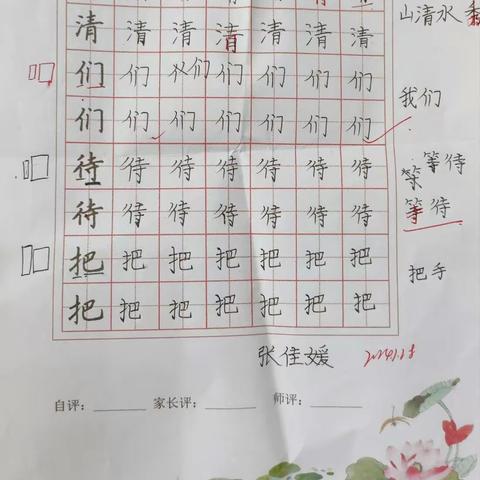 清 清 清 清 清 清 清 山清水秀
们 们 们 们 们 们 们
们 们 们 们 们 们 们 我们
待 待 待 待 待 待 待 等待
待 待 待 待 待 待 待 等待
把 把 把 把 把 把 把 把手
把 把 把 把 把 把 把
张佳媛
自评: 家长评: 师评: